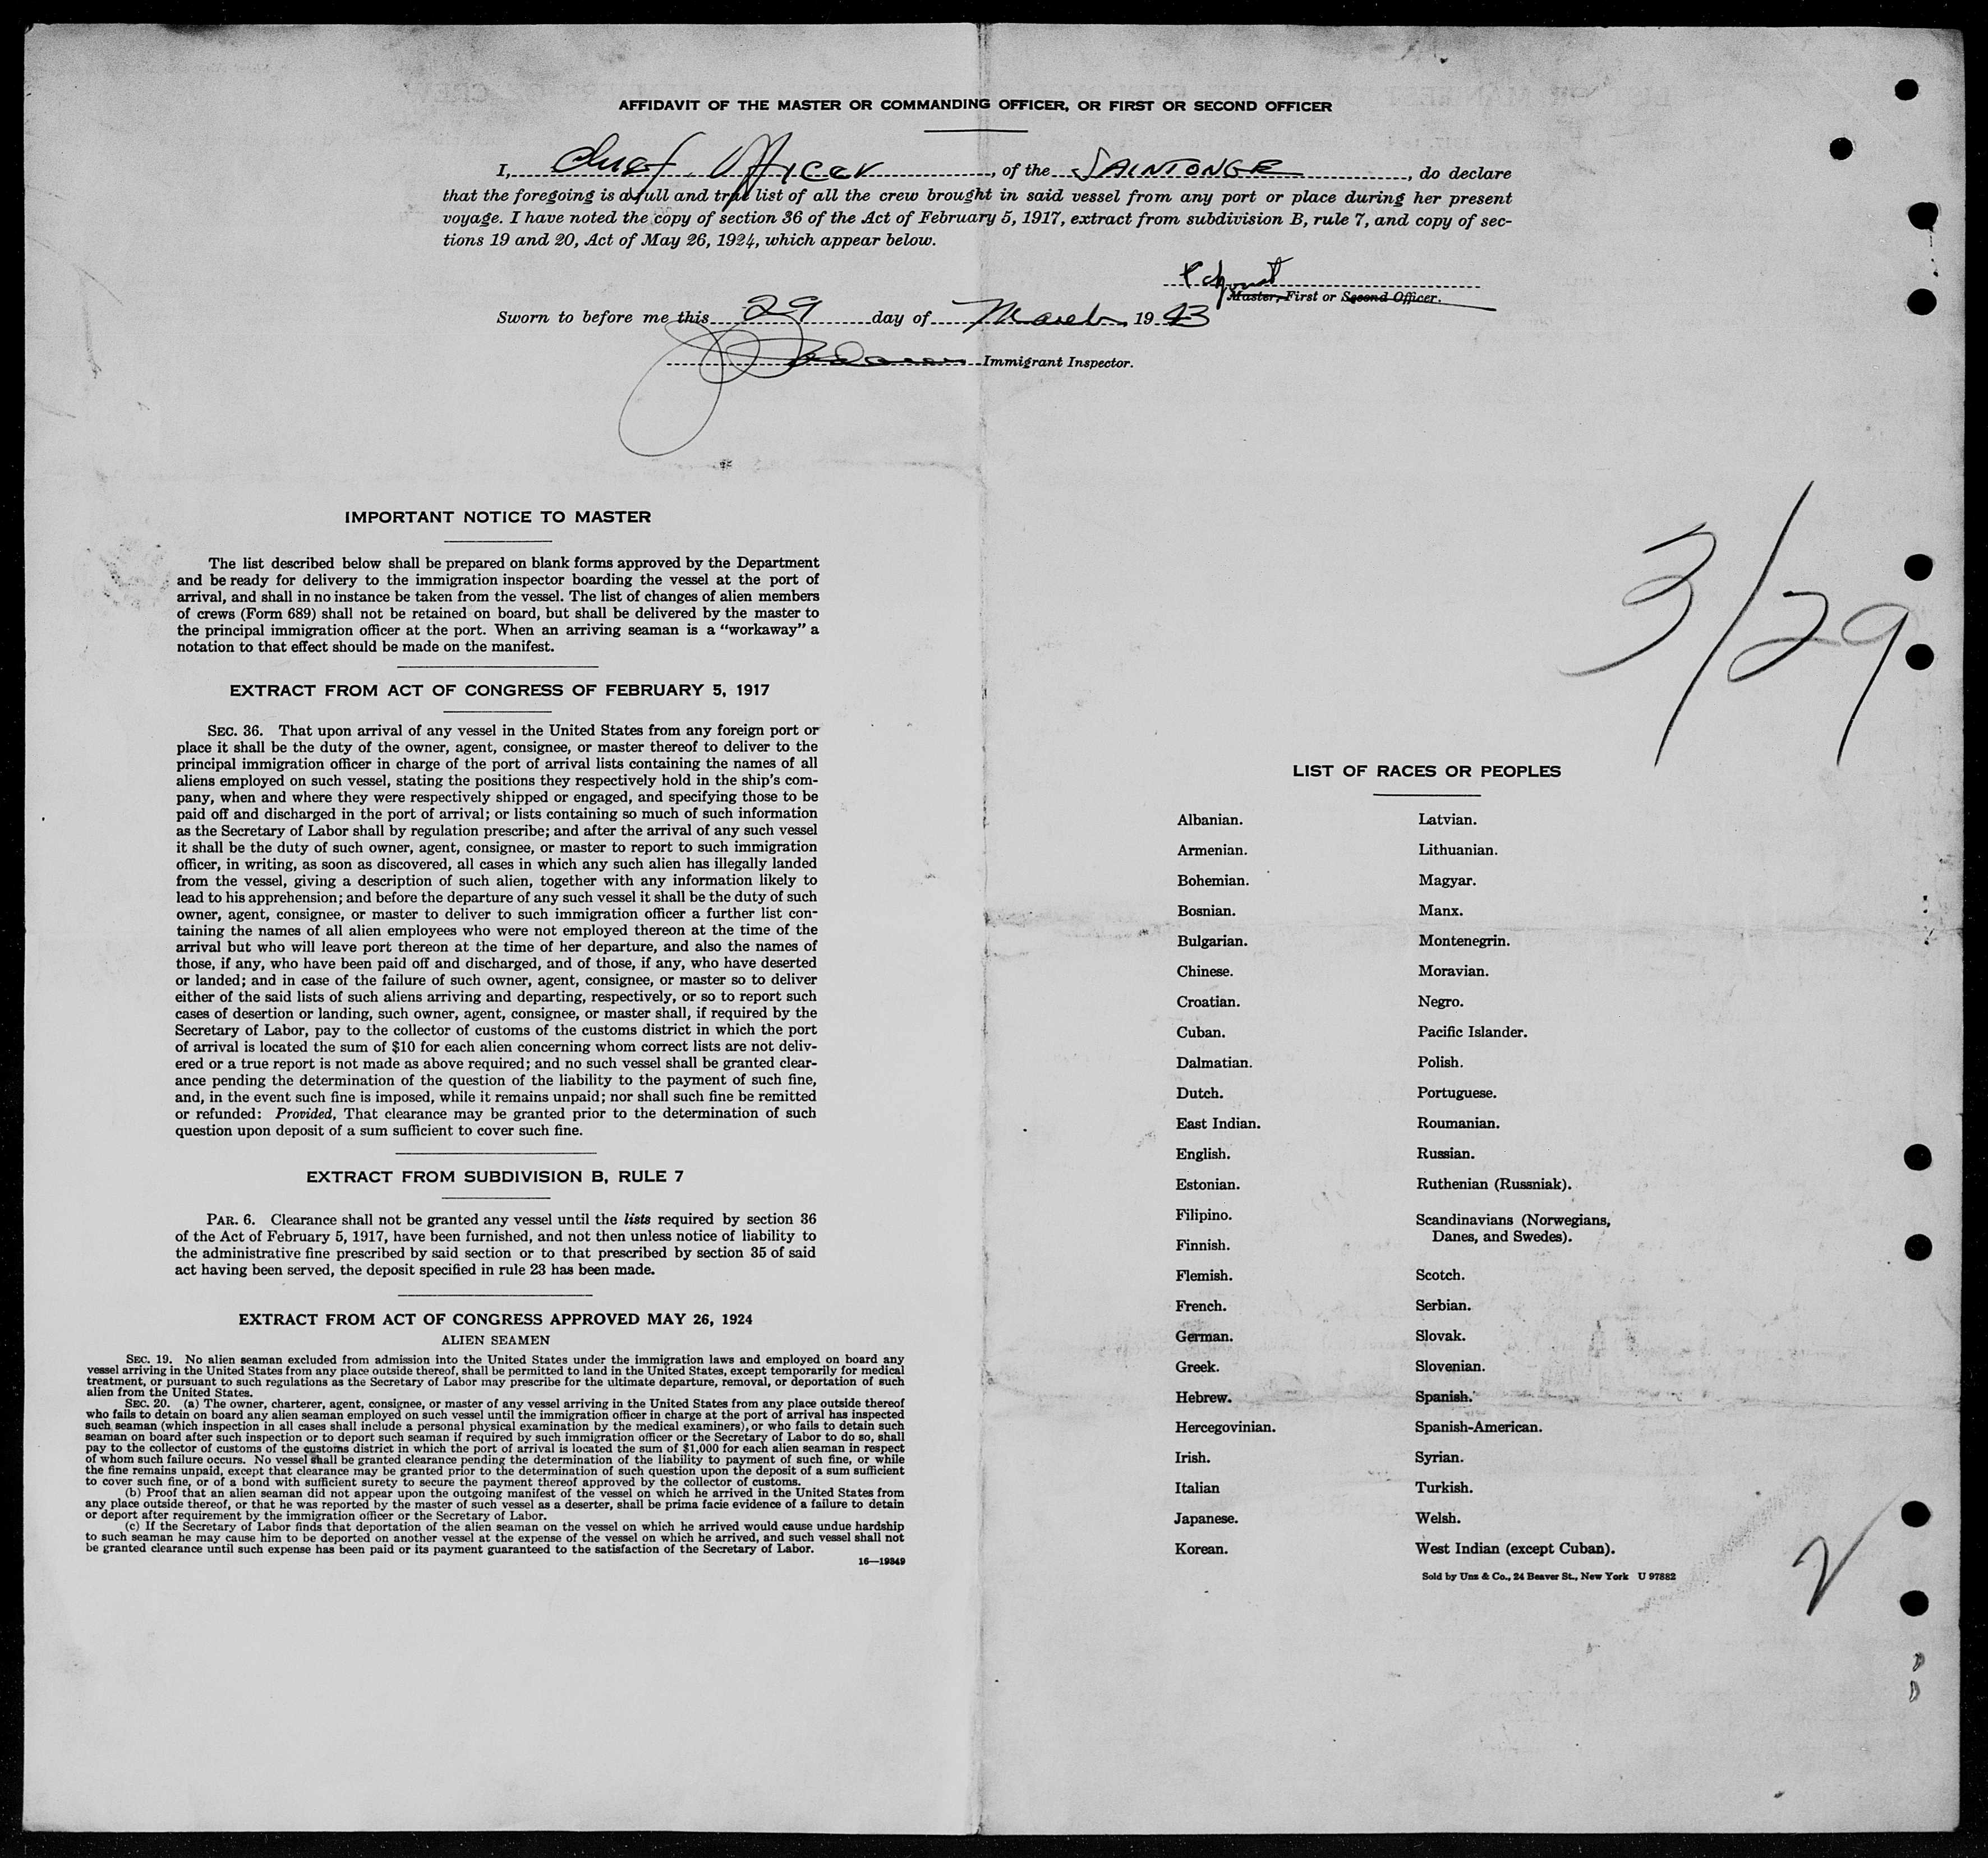 AFFIDAVIT OF THE MASTER OR COMMANDING OFFICER, OR FIRST OR SECOND OFFICER
I, Chief Officer, of the SAINTONGE, do declare
that the foregoing is a full and true list of all the crew brought in said vessel from any port or place during her present
voyage. I have noted the copy of section 36 of the Act of February 5, 1917, extract from subdivision B, rule 7, and copy of sec-
tions 19 and 20, Act of May 26, 1924, which appear below.
Master, First or Second Officer.
Sworn to before me this 29 day of March, 1943
Immigrant Inspector.
3/29
IMPORTANT NOTICE TO MASTER
The list described below shall be prepared on blank forms approved by the Department
and be ready for delivery to the immigration inspector boarding the vessel at the port of
arrival, and shall in no instance be taken from the vessel. The list of changes of alien members
of crews (Form 689) shall not be retained on board, but shall be delivered by the master to
the principal immigration officer at the port. When an arriving seaman is a “workaway” a
notation to that effect should be made on the manifest.
EXTRACT FROM ACT OF CONGRESS OF FEBRUARY 5, 1917
SEC. 36. That upon arrival of any vessel in the United States from any foreign port or
place it shall be the duty of the owner, agent, consignee, or master thereof to deliver to the
principal immigration officer in charge of the port of arrival lists containing the names of all
aliens employed on such vessel, stating the positions they respectively hold in the ship's com-
pany, when and where they were respectively shipped or engaged, and specifying those to be
paid off and discharged in the port of arrival; or lists containing so much of such information
as the Secretary of Labor shall by regulation prescribe; and after the arrival of any such vessel
it shall be the duty of such owner, agent, consignee, or master to report to such immigration
officer, in writing, as soon as discovered, all cases in which any such alien has illegally landed
from the vessel, giving a description of such alien, together with any information likely to
lead to his apprehension; and before the departure of any such vessel it shall be the duty of such
owner, agent, consignee, or master to deliver to such immigration officer a further list con-
taining the names of all alien employees who were not employed thereon at the time of the
arrival but who will leave port thereon at the time of her departure, and also the names of
those, if any, who have been paid off and discharged, and of those, if any, who have deserted
or landed; and in case of the failure of such owner, agent, consignee, or master so to deliver
either of the said lists of such aliens arriving and departing, respectively, or so to report such
cases of desertion or landing, such owner, agent, consignee, or master shall, if required by the
Secretary of Labor, pay to the collector of customs of the customs district in which the port
of arrival is located the sum of $10 for each alien concerning whom correct lists are not deliv-
ered or a true report is not made as above required; and no such vessel shall be granted clear-
ance pending the determination of the question of the liability to the payment of such fine,
and, in the event such fine is imposed, while it remains unpaid; nor shall such fine be remitted
or refunded: Provided, That clearance may be granted prior to the determination of such
question upon deposit of a sum sufficient to cover such fine.
EXTRACT FROM SUBDIVISION B, RULE 7
PAR. 6. Clearance shall not be granted any vessel until the lists required by section 36
of the Act of February 5, 1917, have been furnished, and not then unless notice of liability to
the administrative fine prescribed by said section or to that prescribed by section 35 of said
act having been served, the deposit specified in rule 23 has been made.
EXTRACT FROM ACT OF CONGRESS APPROVED MAY 26, 1924
ALIEN SEAMEN
SEC. 19. No alien seaman excluded from admission into the United States under the immigration laws and employed on board any
vessel arriving in the United States from any place outside thereof, shall be permitted to land in the United States, except temporarily for medical
treatment, or pursuant to such regulations as the Secretary of Labor may prescribe for the ultimate departure, removal, or deportation of such
alien from the United States.
SEC. 20. (a) The owner, charterer, agent, consignee, or master of any vessel arriving in the United States from any place outside thereof
who fails to detain on board any alien seaman employed on such vessel until the immigration officer in charge at the port of arrival has inspected
such seaman (which inspection in all cases shall include a personal physical examination by the medical examiners), or who fails to detain such
seaman on board after such inspection or to deport such seaman if required by such immigration officer or the Secretary of Labor to do so, shall
pay to the collector of customs of the customs district in which the port of arrival is located the sum of $1,000 for each alien seaman in respect
of whom such failure occurs. No vessel shall be granted clearance pending the determination of the liability to payment of such fine, or while
the fine remains unpaid, except that clearance may be granted prior to the determination of such question upon the deposit of a sum sufficient
to cover such fine, or of a bond with sufficient surety to secure the payment thereof approved by the collector of customs.
(b) Proof that an alien seaman did not appear upon the outgoing manifest of the vessel on which he arrived in the United States from
any place outside thereof, or that he was reported by the master of such vessel as a deserter, shall be prima facie evidence of a failure to detain
or deport after requirement by the immigration officer or the Secretary of Labor.
(c) If the Secretary of Labor finds that deportation of the alien seaman on the vessel on which he arrived would cause undue hardship
to such seaman he may cause him to be deported on another vessel at the expense of the vessel on which he arrived, and such vessel shall not
be granted clearance until such expense has been paid or its payment guaranteed to the satisfaction of the Secretary of Labor.
16—19349
LIST OF RACES OR PEOPLES
Albanian.
Armenian.
Bohemian.
Bosnian.
Bulgarian.
Chinese.
Croatian.
Cuban.
Dalmatian.
Dutch.
East Indian.
English.
Estonian.
Filipino.
Finnish.
Flemish.
French.
German.
Greek.
Hebrew.
Hercegovinian.
Irish.
Italian
Japanese.
Korean.
Latvian.
Lithuanian.
Magyar.
Manx.
Montenegrin.
Moravian.
Negro.
Pacific Islander.
Polish.
Portuguese.
Roumanian.
Russian.
Ruthenian (Russniak).
Scandinavians (Norwegians,
Danes, and Swedes).
Scotch.
Serbian.
Slovak.
Slovenian.
Spanish.
Spanish-American.
Syrian.
Turkish.
Welsh.
West Indian (except Cuban).
Sold by Unz & Co., 24 Beaver St., New York U 97882